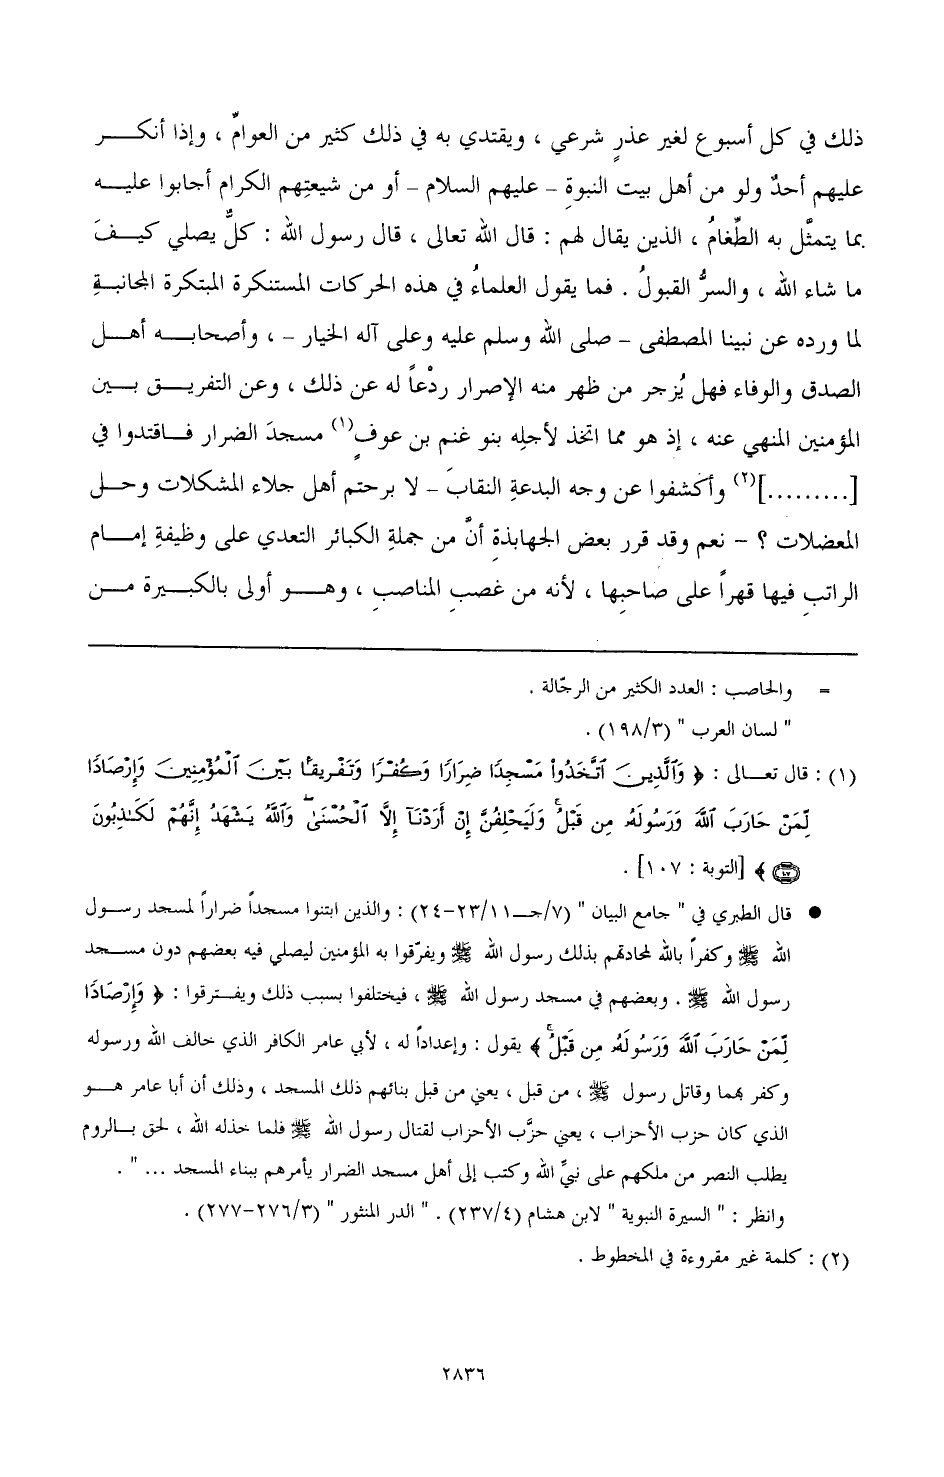 ذلك في كل أسبوع لغير عذرٍ شرعي ، ويقتدي به في ذلك كثير من العوامِّ ، وإذا أنكر
عليهم أحدٌ ولو من أهل بيت النبوةِ – عليهم السلام – أو من شيعتِهم الكرام أجابوا عليه
بما يتمثَّل به الطَّغامُ ، الذين يقال لهم : قال الله تعالى ، قال رسول الله : كلٌّ يصلي كيفَ
ما شاء الله ، والسرُّ القبولُ . فما يقول العلماءُ في هذه الحركات المستنكرة المبتكرة المجانبةِ
لما ورده عن نبينا المصطفى – صلى الله وسلم عليه وعلى آله الخيار – ، وأصحابه أهل
الصدق والوفاء فهل يُزجر من ظهر منه الإصرار ردْعاً له عن ذلك ، وعن التفريق بين
المؤمنين المنهي عنه ، إذ هو مما اتخذ لأجلِه بنو غنم بن عوفٍ(١) مسجدَ الضرار فاقتدوا في
[.........](٢) وأكشفوا عن وجه البدعةِ النقابَ – لا برحتم أهل جلاء المشكلات وحل
المعضلات ؟ – نعم وقد قرر بعض الجهابذةِ أنَّ من جملةِ الكبائر التعدي على وظيفةِ إمام
الراتبِ فيها قهراً على صاحبِها ، لأنه من غصبِ المناصبِ ، وهو أولى بالكبيرة من
= والحاصب : العدد الكثير من الرجّالة .
" لسان العرب " (١٩٨/٣) .
(١) : قال تعالى : ﴿ وَٱلَّذِينَ ٱتَّخَذُوا۟ مَسْجِدًا ضِرَارًا وَكُفْرًا وَتَفْرِيقًۢا بَيْنَ ٱلْمُؤْمِنِينَ وَإِرْصَادًا
لِّمَنْ حَارَبَ ٱللَّهَ وَرَسُولَهُۥ مِن قَبْلُ ۚ وَلَيَحْلِفُنَّ إِنْ أَرَدْنَآ إِلَّا ٱلْحُسْنَىٰ ۖ وَٱللَّهُ يَشْهَدُ إِنَّهُمْ لَكَـٰذِبُونَ
١٠٧ ﴾ [التوبة : ١٠٧] .
● قال الطبري في " جامع البيان " (٧/جـ٢٣/١١-٢٤) : والذين ابتنوا مسجداً ضراراً لمسجد رسول
الله ﷺ وكفراً بالله لمحادتهم بذلك رسول الله ﷺ ويفرّقوا به المؤمنين ليصلي فيه بعضهم دون مسجد
رسول الله ﷺ . وبعضهم في مسجد رسول الله ﷺ ، فيختلفوا بسبب ذلك ويفترقوا : ﴿ وَإِرْصَادًا
لِّمَنْ حَارَبَ ٱللَّهَ وَرَسُولَهُۥ مِن قَبْلُ ۚ ﴾ يقول : وإعداداً له ، لأبي عامر الكافر الذي خالف الله ورسوله
وكفر بهما وقاتل رسول ﷺ ، من قبل ، يعني من قبل بنائهم ذلك المسجد ، وذلك أن أبا عامر هو
الذي كان حزب الأحزاب ، يعني حزَّب الأحزاب لقتال رسول الله ﷺ فلما خذله الله ، لحق بالروم
يطلب النصر من ملكهم على نبيِّ الله وكتب إلى أهل مسجد الضرار يأمرهم ببناء المسجد ... " .
وانظر : " السيرة النبوية " لابن هشام (٢٣٧/٤) . " الدر المنثور " (٢٧٦/٣-٢٧٧) .
(٢) : كلمة غير مقروءة في المخطوط .
٢٨٣٦